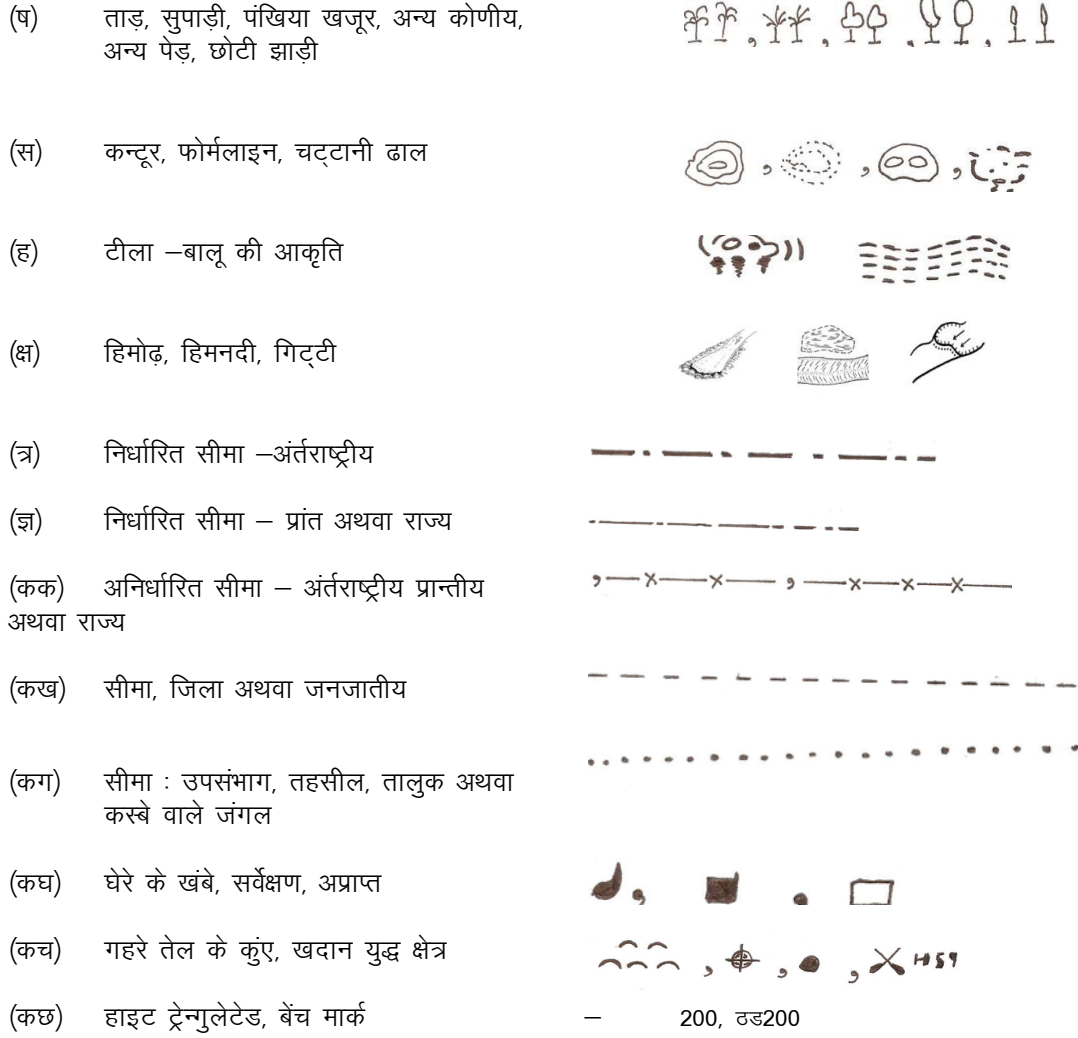 (ष) ताड़, सुपाड़ी, पंखिया खजूर, अन्य कोणीय,
अन्य पेड़, छोटी झाड़ी
(स) कन्टूर, फोर्मलाइन, चट्टानी ढाल
(ह) टीला –बालू की आकृति
(क्ष) हिमोढ़, हिमनदी, गिट्टी
(त्र) निर्धारित सीमा –अंर्तराष्ट्रीय
(ज्ञ) निर्धारित सीमा – प्रांत अथवा राज्य
(कक) अनिर्धारित सीमा – अंर्तराष्ट्रीय प्रान्तीय
अथवा राज्य
(कख) सीमा, जिला अथवा जनजातीय
(कग) सीमा : उपसंभाग, तहसील, तालुक अथवा
कस्बे वाले जंगल
(कघ) घेरे के खंबे, सर्वेक्षण, अप्राप्त
(कच) गहरे तेल के कुंए, खदान युद्ध क्षेत्र
(कछ) हाइट ट्रेन्गुलेटेड, बेंच मार्क – 200, ठड200